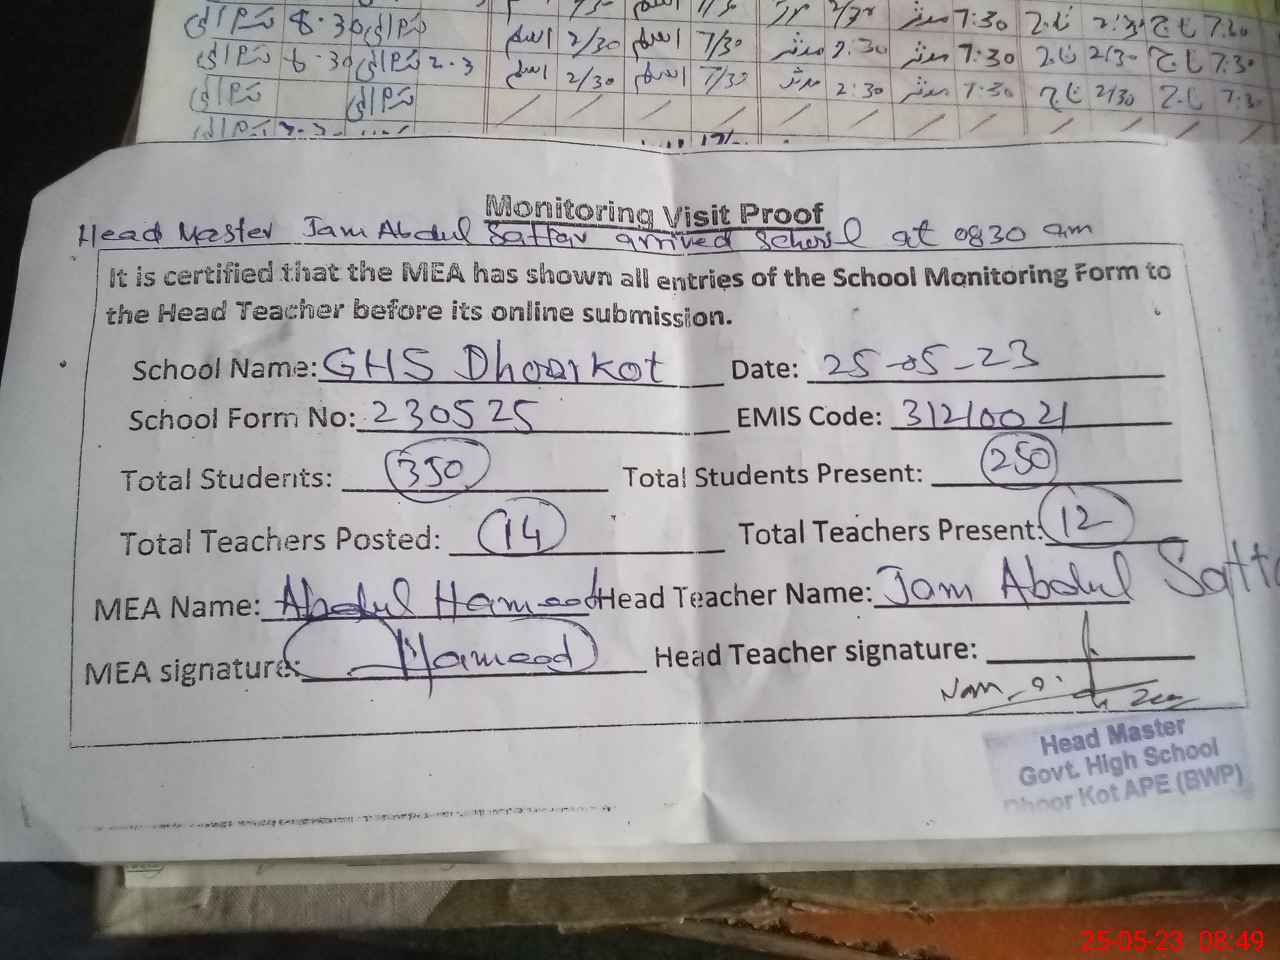 8.30
اسلم 2/30 اسلم 7/30 مدثر 2:30 مدثر 7:30 تاج 2/30 تاج 7:30
اسلم 2/30 اسلم 7/30 مدثر 2:30 مدثر 7:30 تاج 2/30 تاج 7:3
Monitoring Visit Proof
Head Master Jam Abdul Sattar arrived School at 0830 am
It is certified that the MEA has shown all entries of the School Monitoring Form to
the Head Teacher before its online submission.
School Name: GHS Dhoorkot Date: 25-05-23
School Form No: 230525 EMIS Code: 31210021
Total Students: 350 Total Students Present: 250
Total Teachers Posted: 14 Total Teachers Present: 12
MEA Name: Abdul Hameed Head Teacher Name: Jam Abdul Satta
MEA signature: Hameed Head Teacher signature:
Head Master
Govt. High School
Dhoor Kot APE (BWP)
25-05-23 08:49